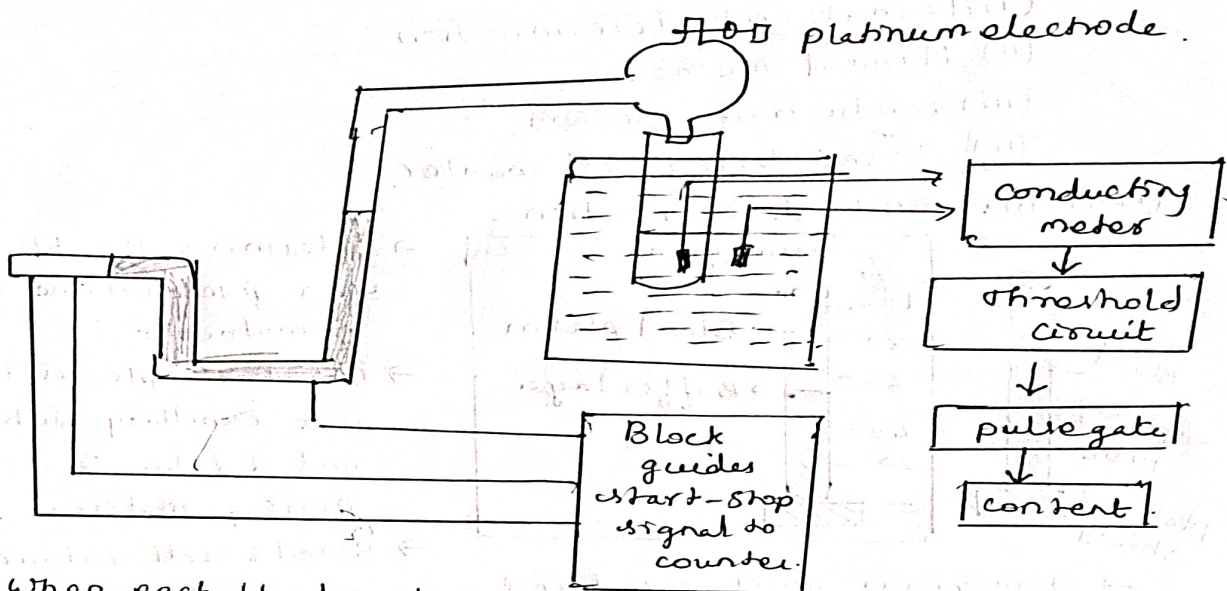 platinum electrode.
conducting
meter
threshold
circuit
pulsegate
content
Block
guides
start-stop
signal to
counter.
when